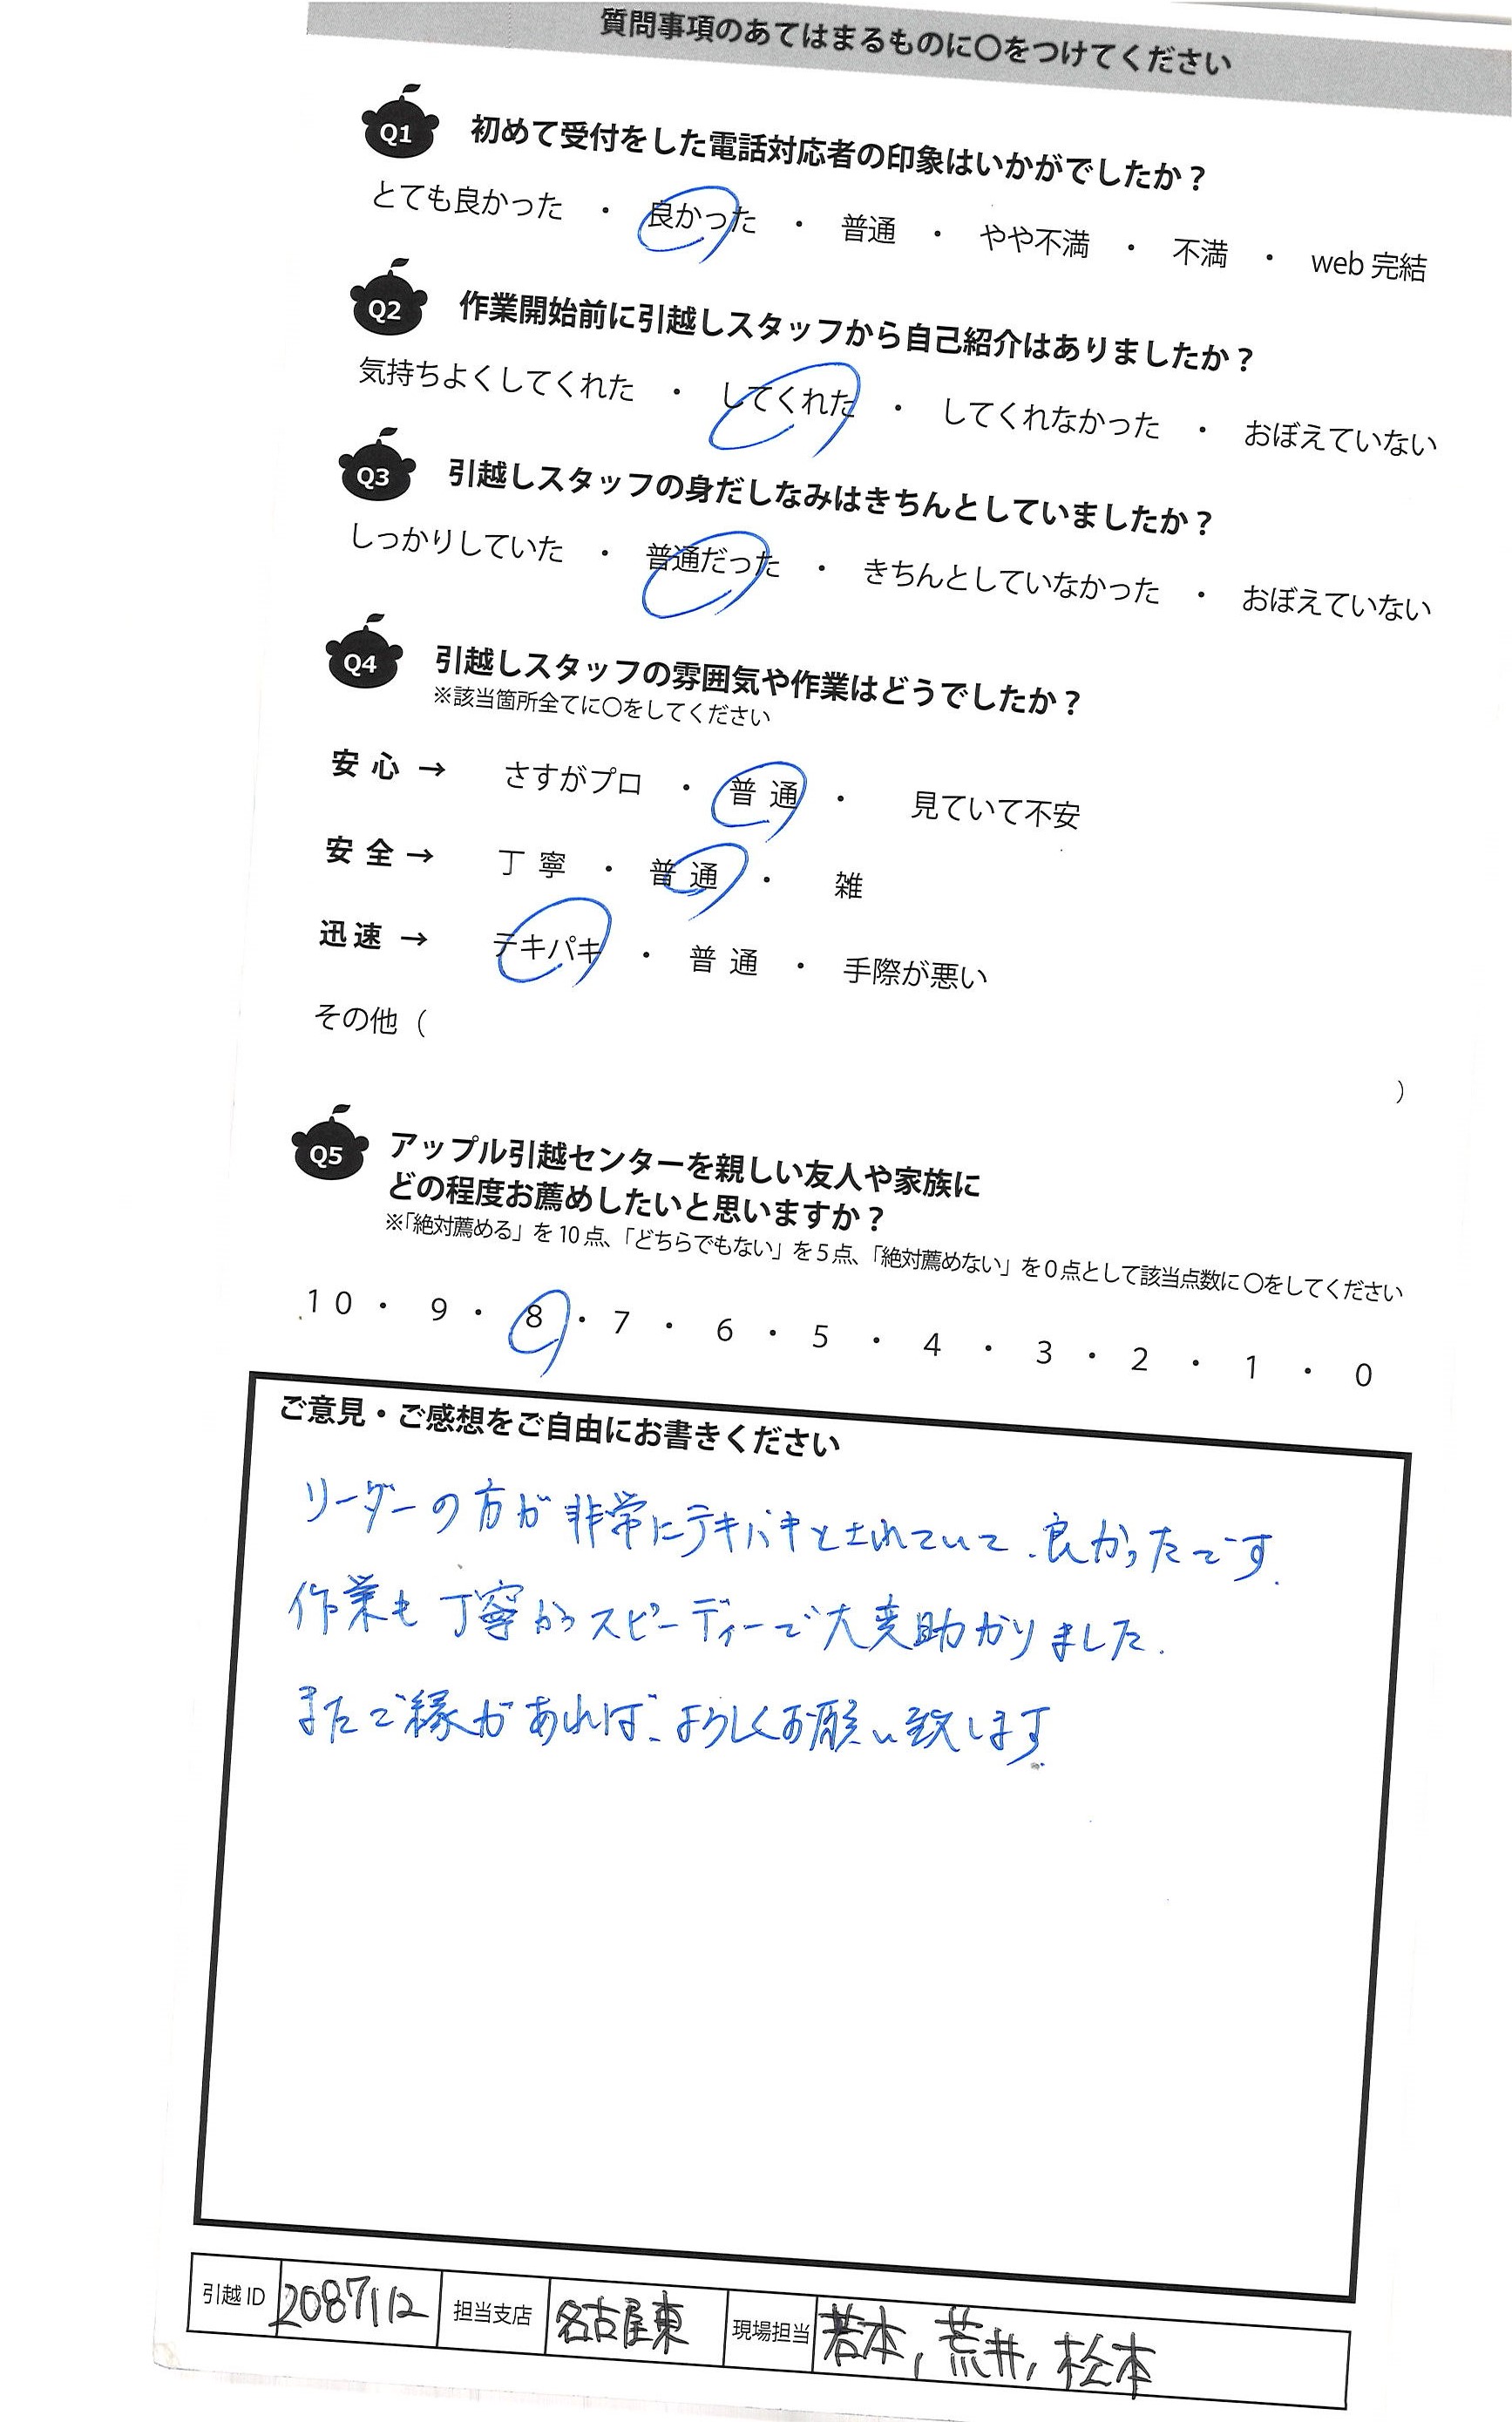 質問事項のあてはまるものに○をつけてください
Q1 初めて受付をした電話対応者の印象はいかがでしたか？
とても良かった ・ 良かった ・ 普通 ・ やや不満 ・ 不満 ・ web 完結
Q2 作業開始前に引越しスタッフから自己紹介はありましたか？
気持ちよくしてくれた ・ してくれた ・ してくれなかった ・ おぼえていない
Q3 引越しスタッフの身だしなみはきちんとしていましたか？
しっかりしていた ・ 普通だった ・ きちんとしていなかった ・ おぼえていない
Q4 引越しスタッフの雰囲気や作業はどうでしたか？
※該当箇所全てに○をしてください
安心 → さすがプロ ・ 普通 ・ 見ていて不安
安全 → 丁寧 ・ 普通 ・ 雑
迅速 → テキパキ ・ 普通 ・ 手際が悪い
その他（ ）
Q5 アップル引越センターを親しい友人や家族に
どの程度お薦めしたいと思いますか？
※「絶対薦める」を10点、「どちらでもない」を5点、「絶対薦めない」を0点として該当点数に○をしてください
10 ・ 9 ・ 8 ・ 7 ・ 6 ・ 5 ・ 4 ・ 3 ・ 2 ・ 1 ・ 0
ご意見・ご感想をご自由にお書きください
リーダーの方が非常にテキパキとされていて、良かったです。
作業も丁寧かつスピーディーで大変助かりました。
またご縁があれば、よろしくお願い致します。
引越ID 2087112 担当支店 名古屋東 現場担当 若本, 荒井, 松本